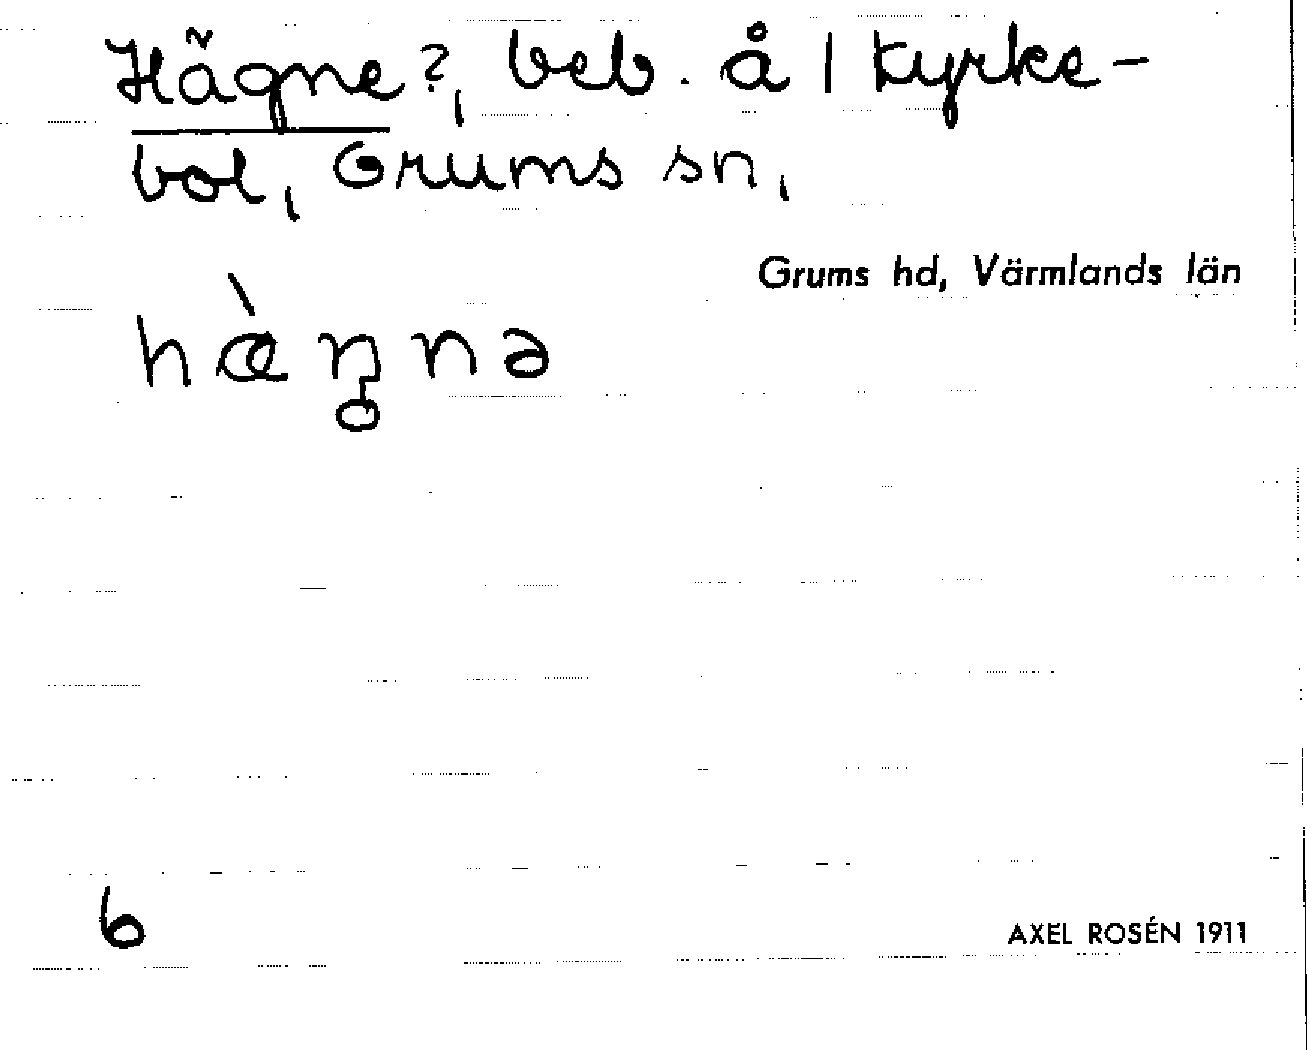 Hägne?, beb. å 1 Kyrke-
bol, Grums sn,
Grums hd, Värmlands län
hæ̀ŋnə
6
AXEL ROSÉN 1911